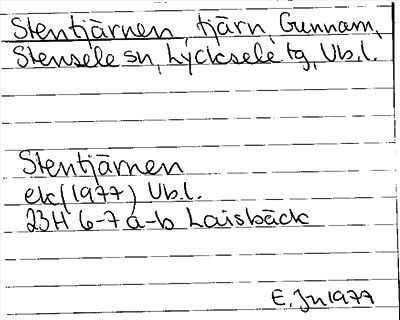 Stentjärnen, tjärn, Gunnarn,
Stensele sn, Lycksele tg, Vb.l.
Stentjärnen
ek (1977) Vb.l.
23H 6-7 a-b Laisbäck
E. Jn 1977